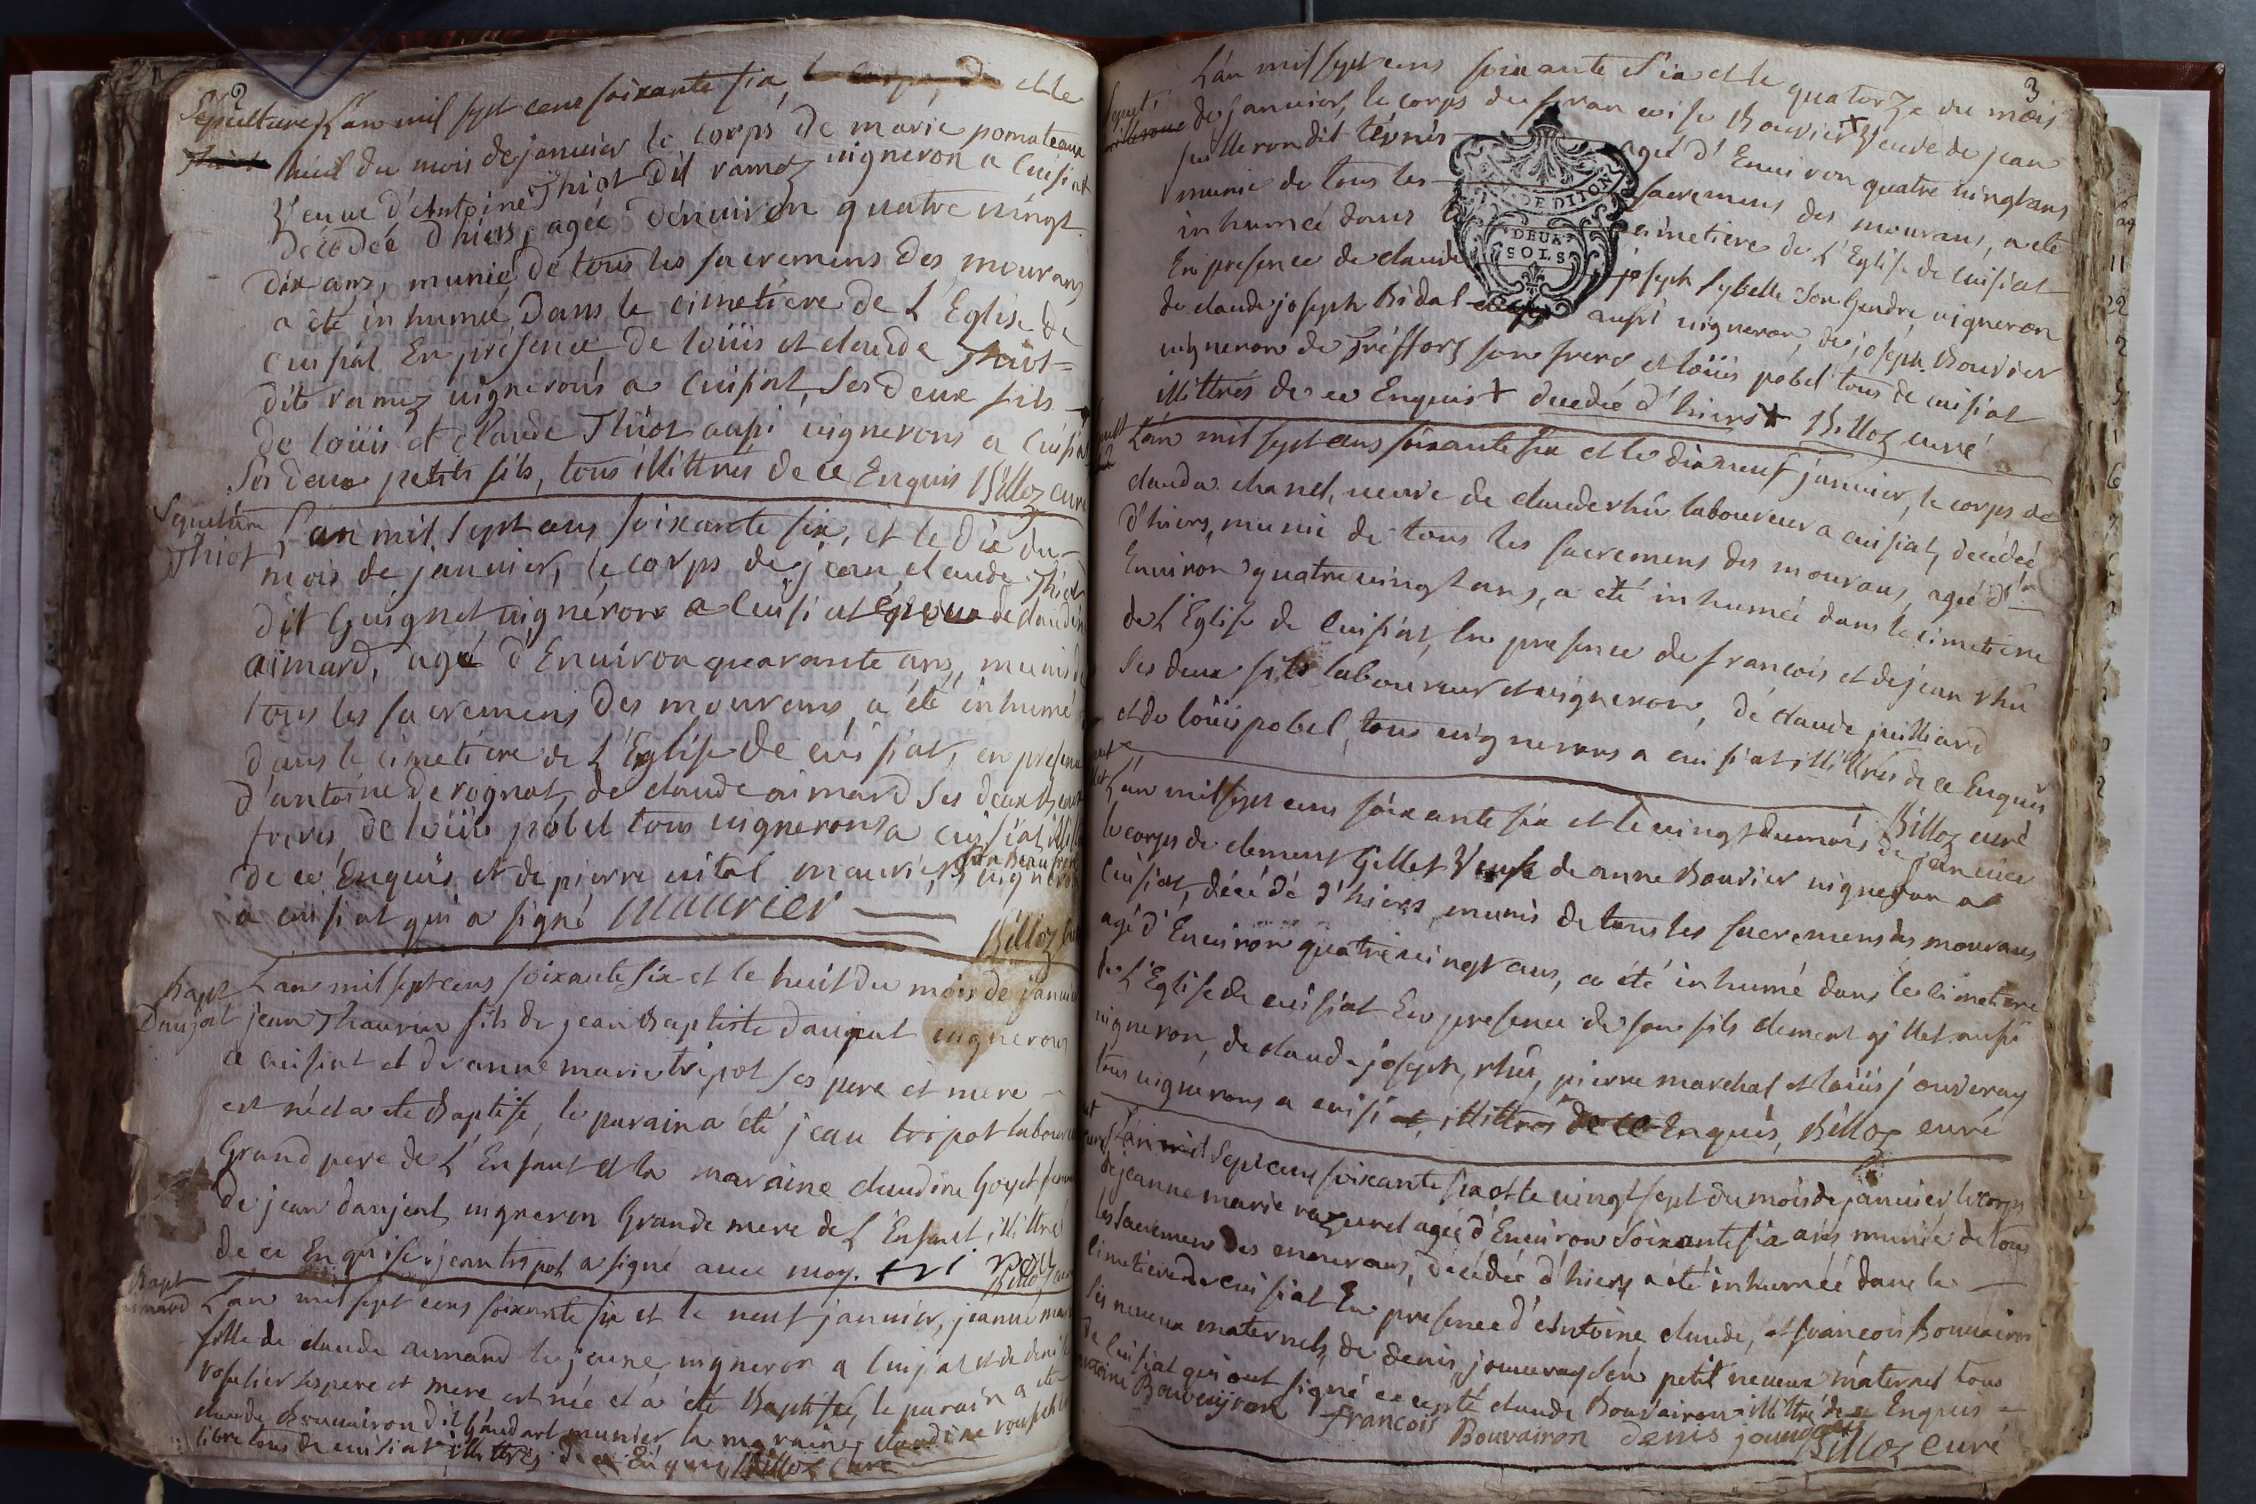 2
Sepulture L'an mil sept cens soixante six, et le
huit du mois de janvier le corps de marie pomateaux
Veuve d'Antoine Thiot dit ramez vigneron a Cuisiat
décédée d'hiers, agée d'environ quatre vingt
dix ans, munie de tous les sacremens des mourans
a été inhumée dans le cimetiere de L'Eglise de
cuisiat En présence de loüis et claude Thiot
dits ramez vignerons a Cuisiat, ses deux fils
de loüis et claude Thiot aussi vignerons a Cuisiat
ses deux petits fils, tous illittrés de ce Enquis Billoz curé
Sepulture
Thiot
L'an mil sept cens soixante six, et le dix du
mois de janvier, le corps de jean claude Thiot
dit Guignet vigneron a Cuisiat époux de claudine
aimard, agé d'Environ quarante ans, munis de
tous les sacremens des mourans, a été inhumé
dans le cimetiere de L'Eglise de cuisiat, en presence
d'antoine derognat, de claude aimard ses deux beaux
freres, de loüis pobel tous vignerons a cuisiat illittrés
de ce Enquis et de pierre vital maurier son beau frere vigneron
a cuisiat qui a signé maurier
Billoz curé
Bapt
Daujat
L'an mil sept cens soixante six et le huit du mois de janvier
jean Thaurin fils de jean Baptiste daujat vigneron
a cuisiat et d'anne marie tripot ses pere et mere
est né et a eté Baptisé, le parain a été jean tripot laboureur
Grand pere de L'Enfant et la maraine claudine Goyet femme
de jean daujat, vigneron Grande mere de L'Enfant, illittrée
de ce Enquise, jean tripot a signé avec moy. tri pot
Billoz curé
Bapt
aimard
L'an mil sept cens soixante six et le neuf janvier, jeanne marie
fille de claude aimard le jeune vigneron a Cuisiat et de denise
rosselier ses pere et mere est née et a été Baptisée, le parain a été
claude Bouvairon dit Gaudart munier la maraine claudine
libre tous de cuisiat illittrés de ce Enquis Billoz curé
3
L'an mil sept cens soixante six et le quatorze du mois
de janvier, le corps de francoise Bouvier Veuve de jean
fuilleron dit ternis agée d'Environ quatre vingt ans
munie de tous les sacremens des mourans, a eté
inhumée dans le cimetiere de L'Eglise de Cuisiat
En presence de claude joseph Sybelle son Gendre vigneron
de claude joseph Bidal aussi vigneron, de joseph Bouvier
vigneron de Treffort son frere et loüis pobel tous de cuisiat
illittrés de ce Enquis + decedée d'hiers + Billoz curé
DE DIJON
DEUX
SOLS
L'an mil sept cens soixante six et le dix neuf janvier, le corps de
clauda chanel, veuve de claude rhû laboureur a cuisiat, decédée
d'hiers, munie de tous les sacremens des mourans, agée d'
Environ quatre vingt ans, a été inhumée dans le cimetiere
de L'Eglise de Cuisiat, En presence de francois et de jean rhû
ses deux fils laboureur et vigneron, de claude juilliard
et de loüis pobel, tous vignerons a cuisiat illittrés de ce Enquis
Billoz curé
L'an mil sept cens soixante six et le vingt du mois de janvier
le corps de clement Gillet Veuf de anne Bouvier vigneron a
Cuisiat, décédé d'hiers, munis de tous les sacremens des mourans
agé d'Environ quatre vingt ans, a été inhumé dans le cimetiere
de L'Eglise de cuisiat En presence de son fils clement gillet aussi
vigneron, de claude joseph rhû, pierre marechal et loüis jouvray
tous vignerons a cuisiat, illittrés de ce Enquis, Billoz curé
L'an mil sept cens soixante six et le vingt sept du mois de janvier le corps
de jeanne marie razurel agée d'Environ soixante six ans munie de tous
les sacremens des mourans, decédée d'hiers a été inhumée dans le
cimetiere de Cuisiat En presence d'Antoine claude, et francois Bouvairon
ses neveux maternels, de denis jouvray son petit neveux maternel tous
de Cuisiat qui ont signé excepté claude Bouvairon illittré de ce Enquis
antoine Bouveyron francois Bouvairon denis jouvray
Billoz Curé